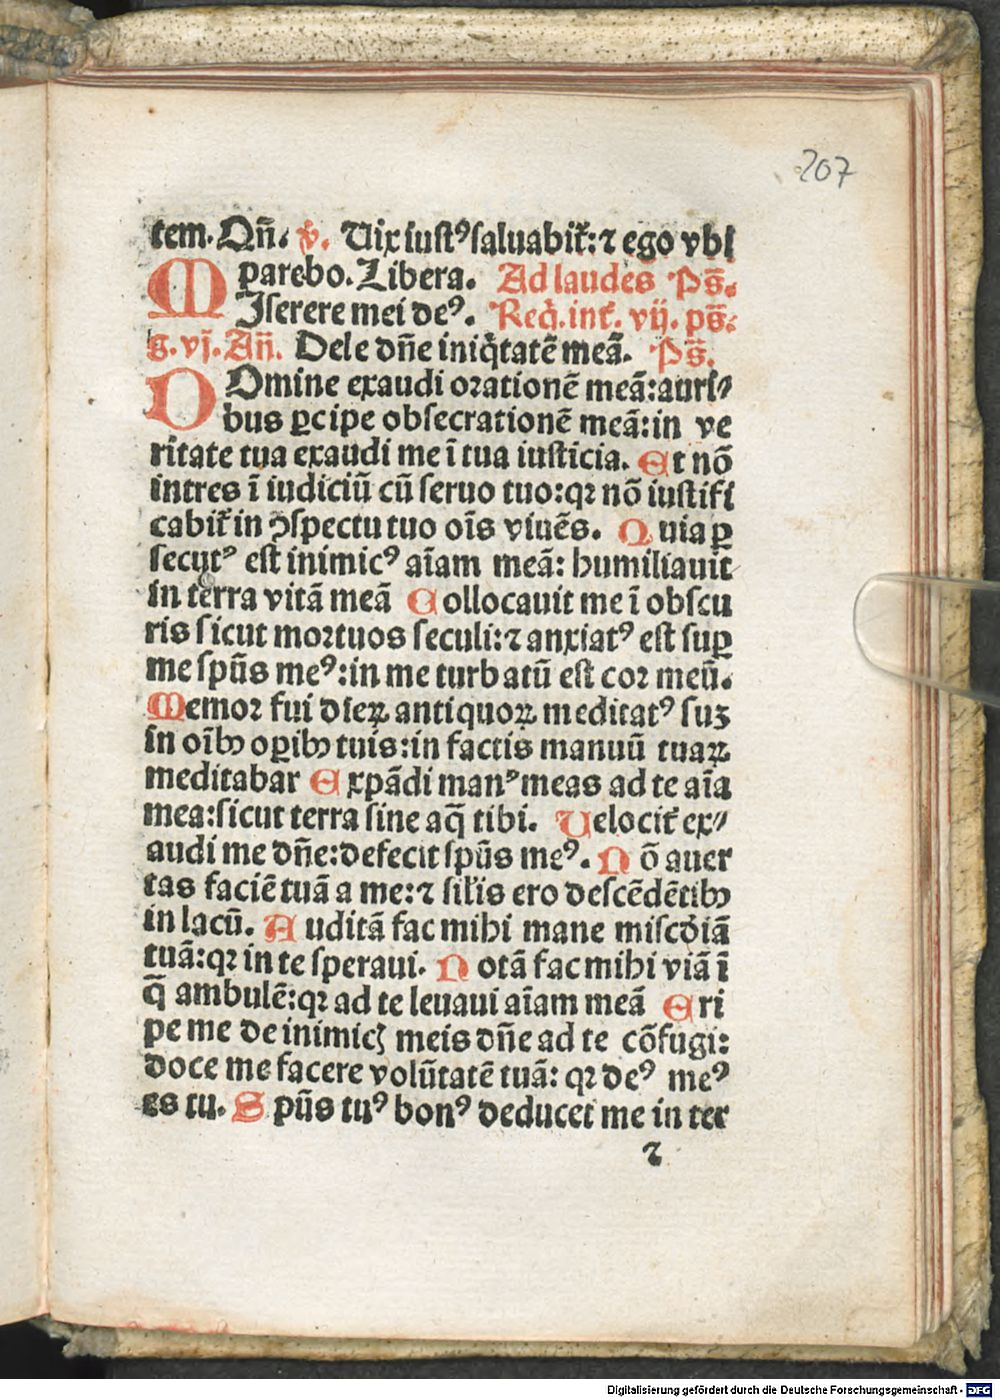 207
tem. Qñ. v̄. Uix iustꝰ saluabit̄: ⁊ ego vbi
parebo. Libera. Ad laudes Ps̄.
MIserere mei deꝰ. Req̄. int̄. vij. ps̄.
g. vj. Añ. Dele dn̄e iniq̇tatē meā. Ps̄.
DOmine exaudi orationē meā: auri⸗
bus ꝑcipe obsecrationē meā: in ve
ritate tua exaudi me ī tua iusticia. Et nō
intres ī iudiciū cū seruo tuo: qꝛ nō iustifi
cabit̄ in ꝯspectu tuo oīs viuēs. Quia ꝑ
secutꝰ est inimicꝰ aīam meā: humiliauit
in terra vitā meā Collocauit me ī obscu
ris sicut moꝛtuos seculi: ⁊ anxiatꝰ est suꝑ
me spūs meꝰ: in me turbatū est coꝛ meū.
Memoꝛ fui dieꝝ antiquoꝝ meditatꝰ suꝫ
in oīb⁹ oꝑib⁹ tuis: in factis manuū tuaꝝ
meditabar Expādi manꝰ meas ad te aīa
mea: sicut terra sine aq̄ tibi. Uelocit̄ ex⸗
audi me dn̄e: defecit spūs meꝰ. Nō auer
tas faciē tuā a me: ⁊ sil̄is ero descēdētib⁹
in lacū. Auditā fac mihi mane misc̄diā
tuā: qꝛ in te speraui. Notā fac mihi viā ī
q̄ ambulē: qꝛ ad te leuaui aīam meā Eri
pe me de inimicꝭ meis dn̄e ad te cōfugi:
doce me facere volūtatē tuā: qꝛ deꝰ meꝰ
es tu. Spūs tuꝰ bonꝰ deducet me in ter
⁊
Digitalisierung gefördert durch die Deutsche Forschungsgemeinschaft - DFG